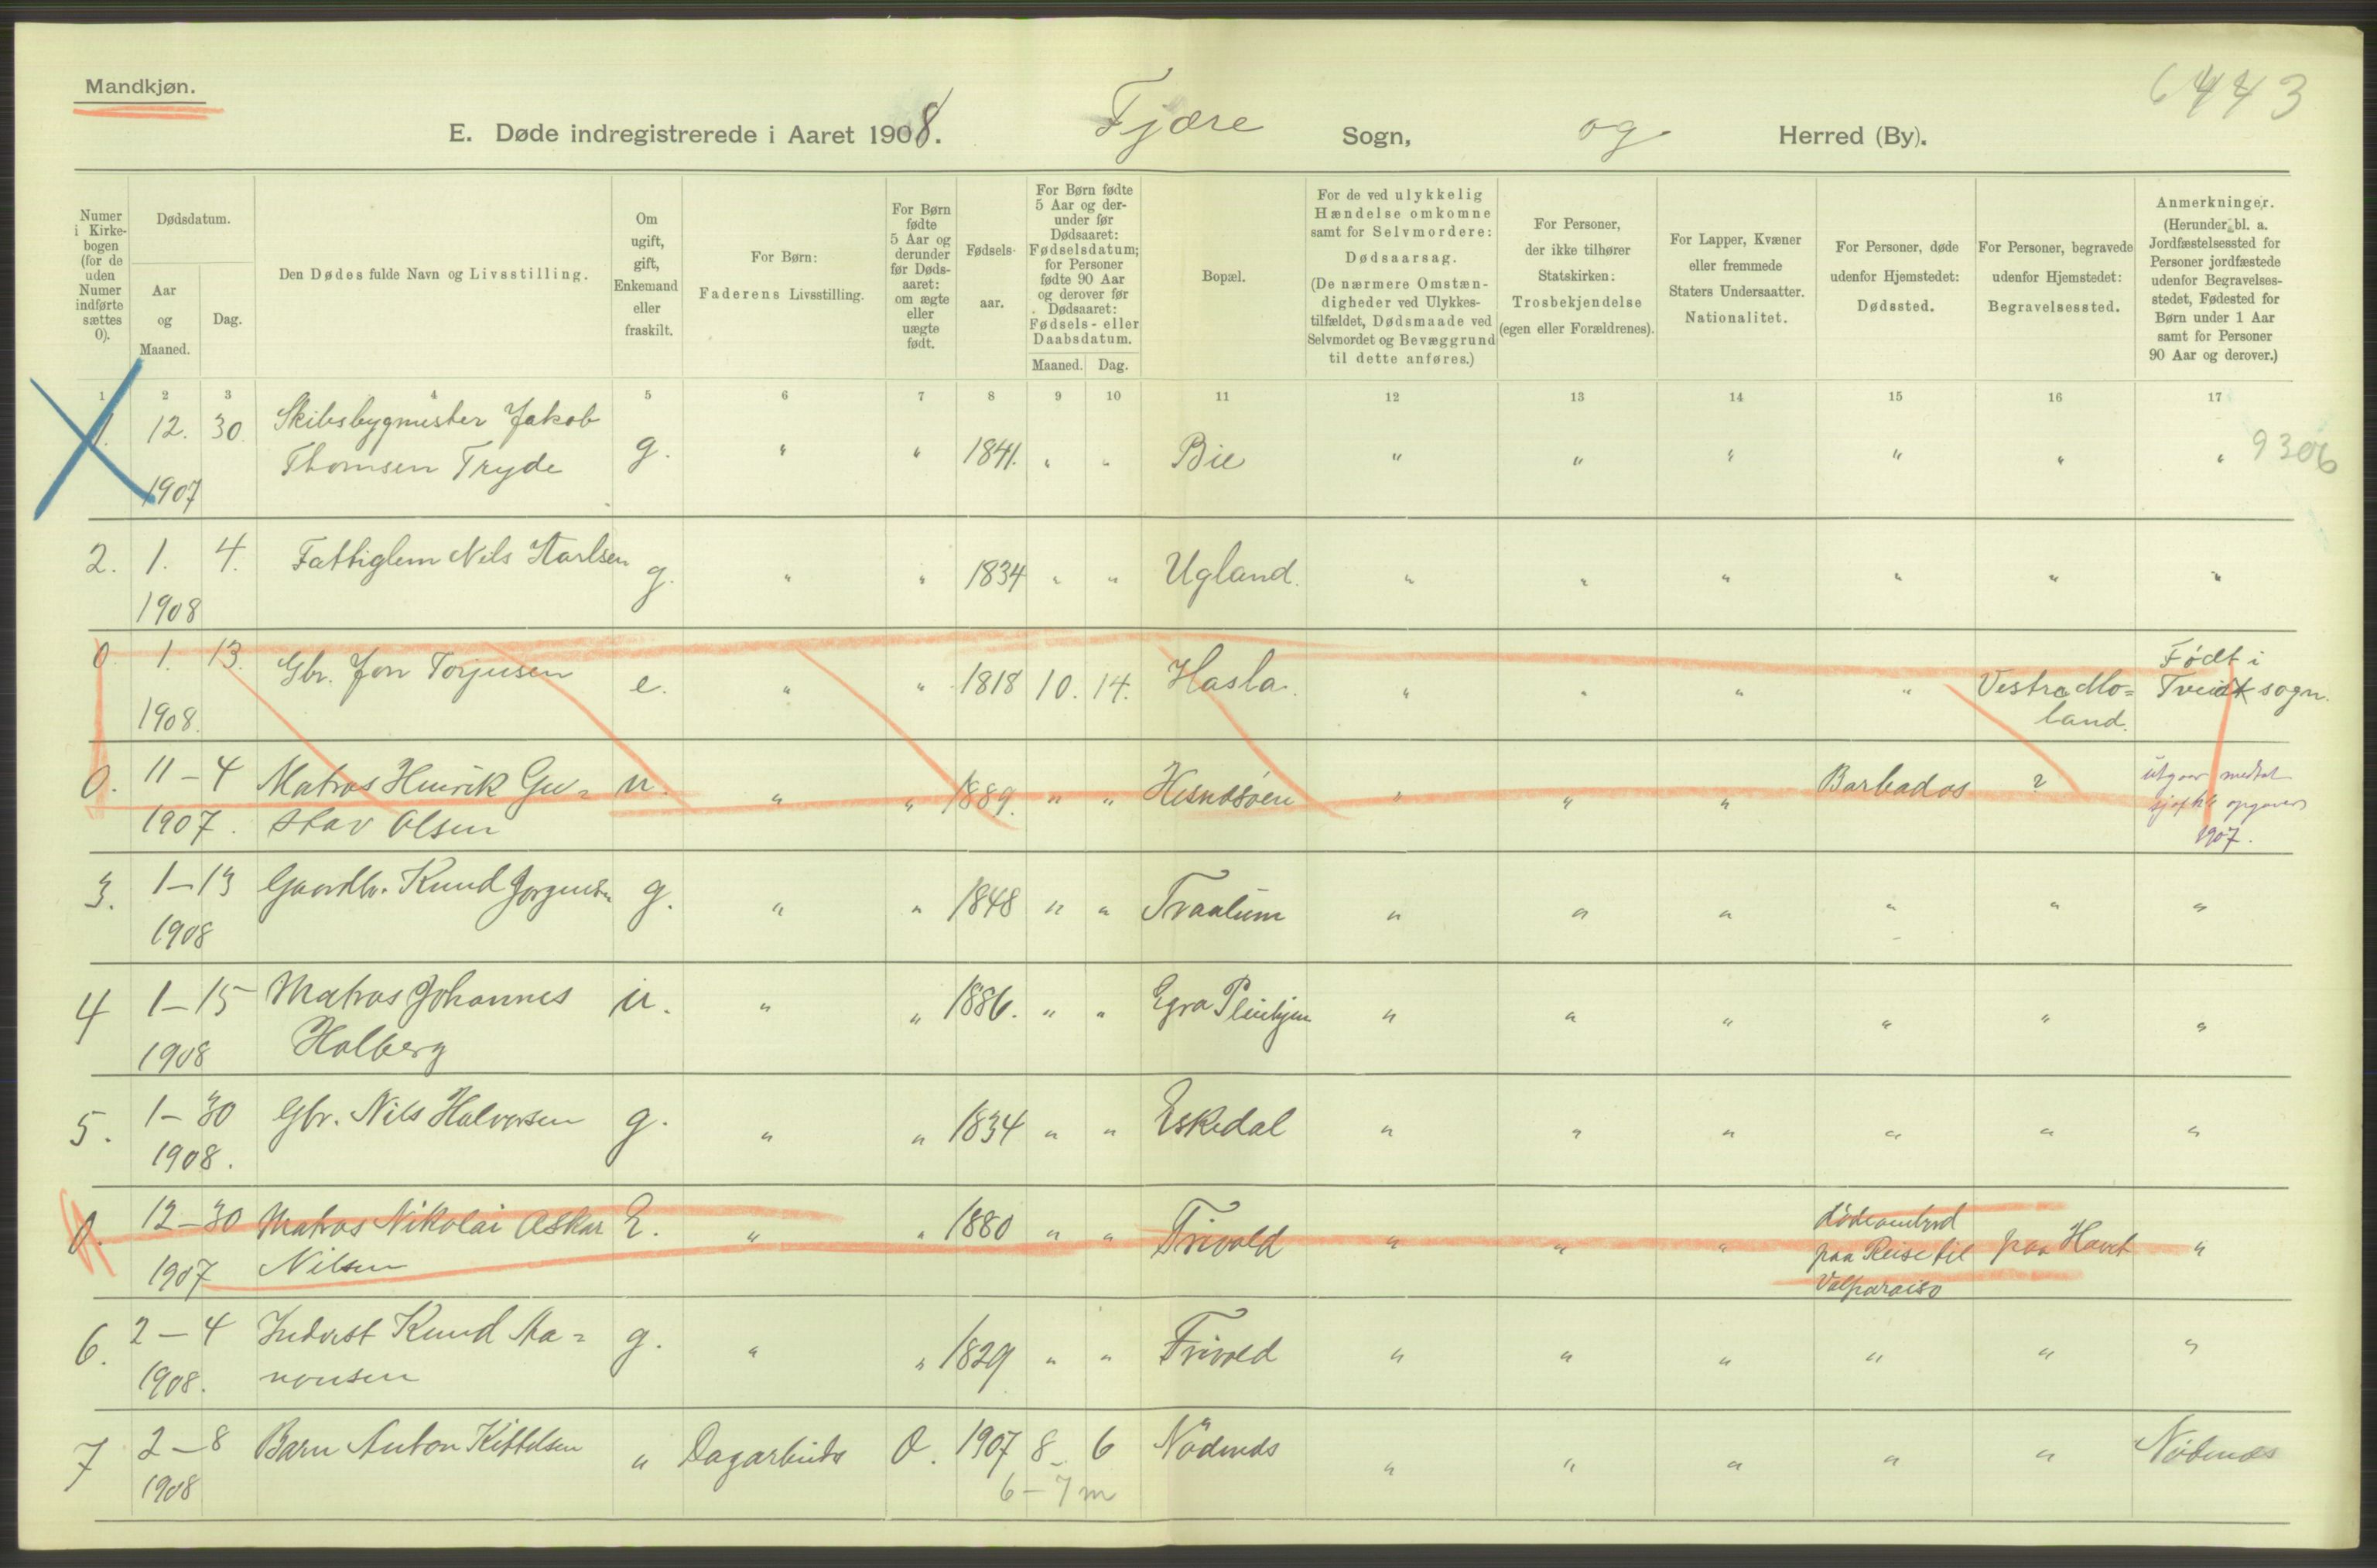 Mandkjøn.
6443
E. Døde indregistrerede i Aaret 1908. Fjære Sogn, og Herred (By).
Numer i Kirkebogen (for de uden Numer indførte sættes 0).
Dødsdatum.
Aar og Maaned.
Dag.
Den Dødes fulde Navn og Livsstilling.
Om ugift, gift, Enkemand eller fraskilt.
For Børn: Faderens Livsstilling.
For Børn fødte 5 Aar og derunder før Dødsaaret: om ægte eller uægte født.
Fødselsaar.
For Børn fødte 5 Aar og derunder før Dødsaaret: Fødselsdatum; for Personer fødte 90 Aar og derover før Dødsaaret: Fødsels- eller Daabsdatum.
Maaned. Dag.
Bopæl.
For de ved ulykkelig Hændelse omkomne samt for Selvmordere: Dødsaarsag. (De nærmere Omstændigheder ved Ulykkestilfældet, Dødsmaade ved Selvmordet og Bevæggrund til dette anføres.)
For Personer, der ikke tilhører Statskirken: Trosbekjendelse (egen eller Forældrenes).
For Lapper, Kvæner eller fremmede Staters Undersaatter. Nationalitet.
For Personer, døde udenfor Hjemstedet: Dødssted.
For Personer, begravede udenfor Hjemstedet: Begravelsessted.
Anmerkninger. (Herunder bl. a. Jordfæstelsessted for Personer jordfæstede udenfor Begravelsesstedet, Fødested for Børn under 1 Aar samt for Personer 90 Aar og derover.)
1 2 3 4 5 6 7 8 9 10 11 12 13 14 15 16 17
1. 12. 30 Skibsbygmester Jakob g. " " 1841. " " Bie " " " " " " 9306
1907 Thomsen Tryde
2. 1. 4. Fattiglem Nils Karlsen g. " " 1834 " " Ugland. " " " " " "
1908
0. 1. 13. Gbr. Jon Torjusen e. " " 1818 10. 14. Hasla. " " " " Vestre Mo= Født i
1908. land. Tveidt sogn.
0. 11-4 Matros Henrik Gu= u. " " 1889. " " Hesnesøen " " " Barbados ? utgaar
1907. stav Olsen opgaver 1907.
3. 1-13 Gaardbr. Knud Jørgensen g. " " 1848 " " Traalum " " " " " "
1908
4 1-15 Matros Johannes u. " " 1886. " " Egra " " " " " "
1908 Holberg
5. 1-30 Gbr. Nils Halvorsen g. " " 1834 " " Eskedal " " " " " "
1908.
0. 12-30 Matros Nikolai Oskar E. " " 1880 " " Frivold " " " døde ombord paa Havet "
1907 Nilsen paa Reise til
Valparaiso
6. 2-4 Inderst Knud Aa= g. " " 1829 " " Frivold " " " " " "
1908. nonsen
7 2-8 Barn Anton Kittelsen " Dagarbeider O. 1907 8- 6 Nødenes " " " " " Nødenes
1908 6-7m